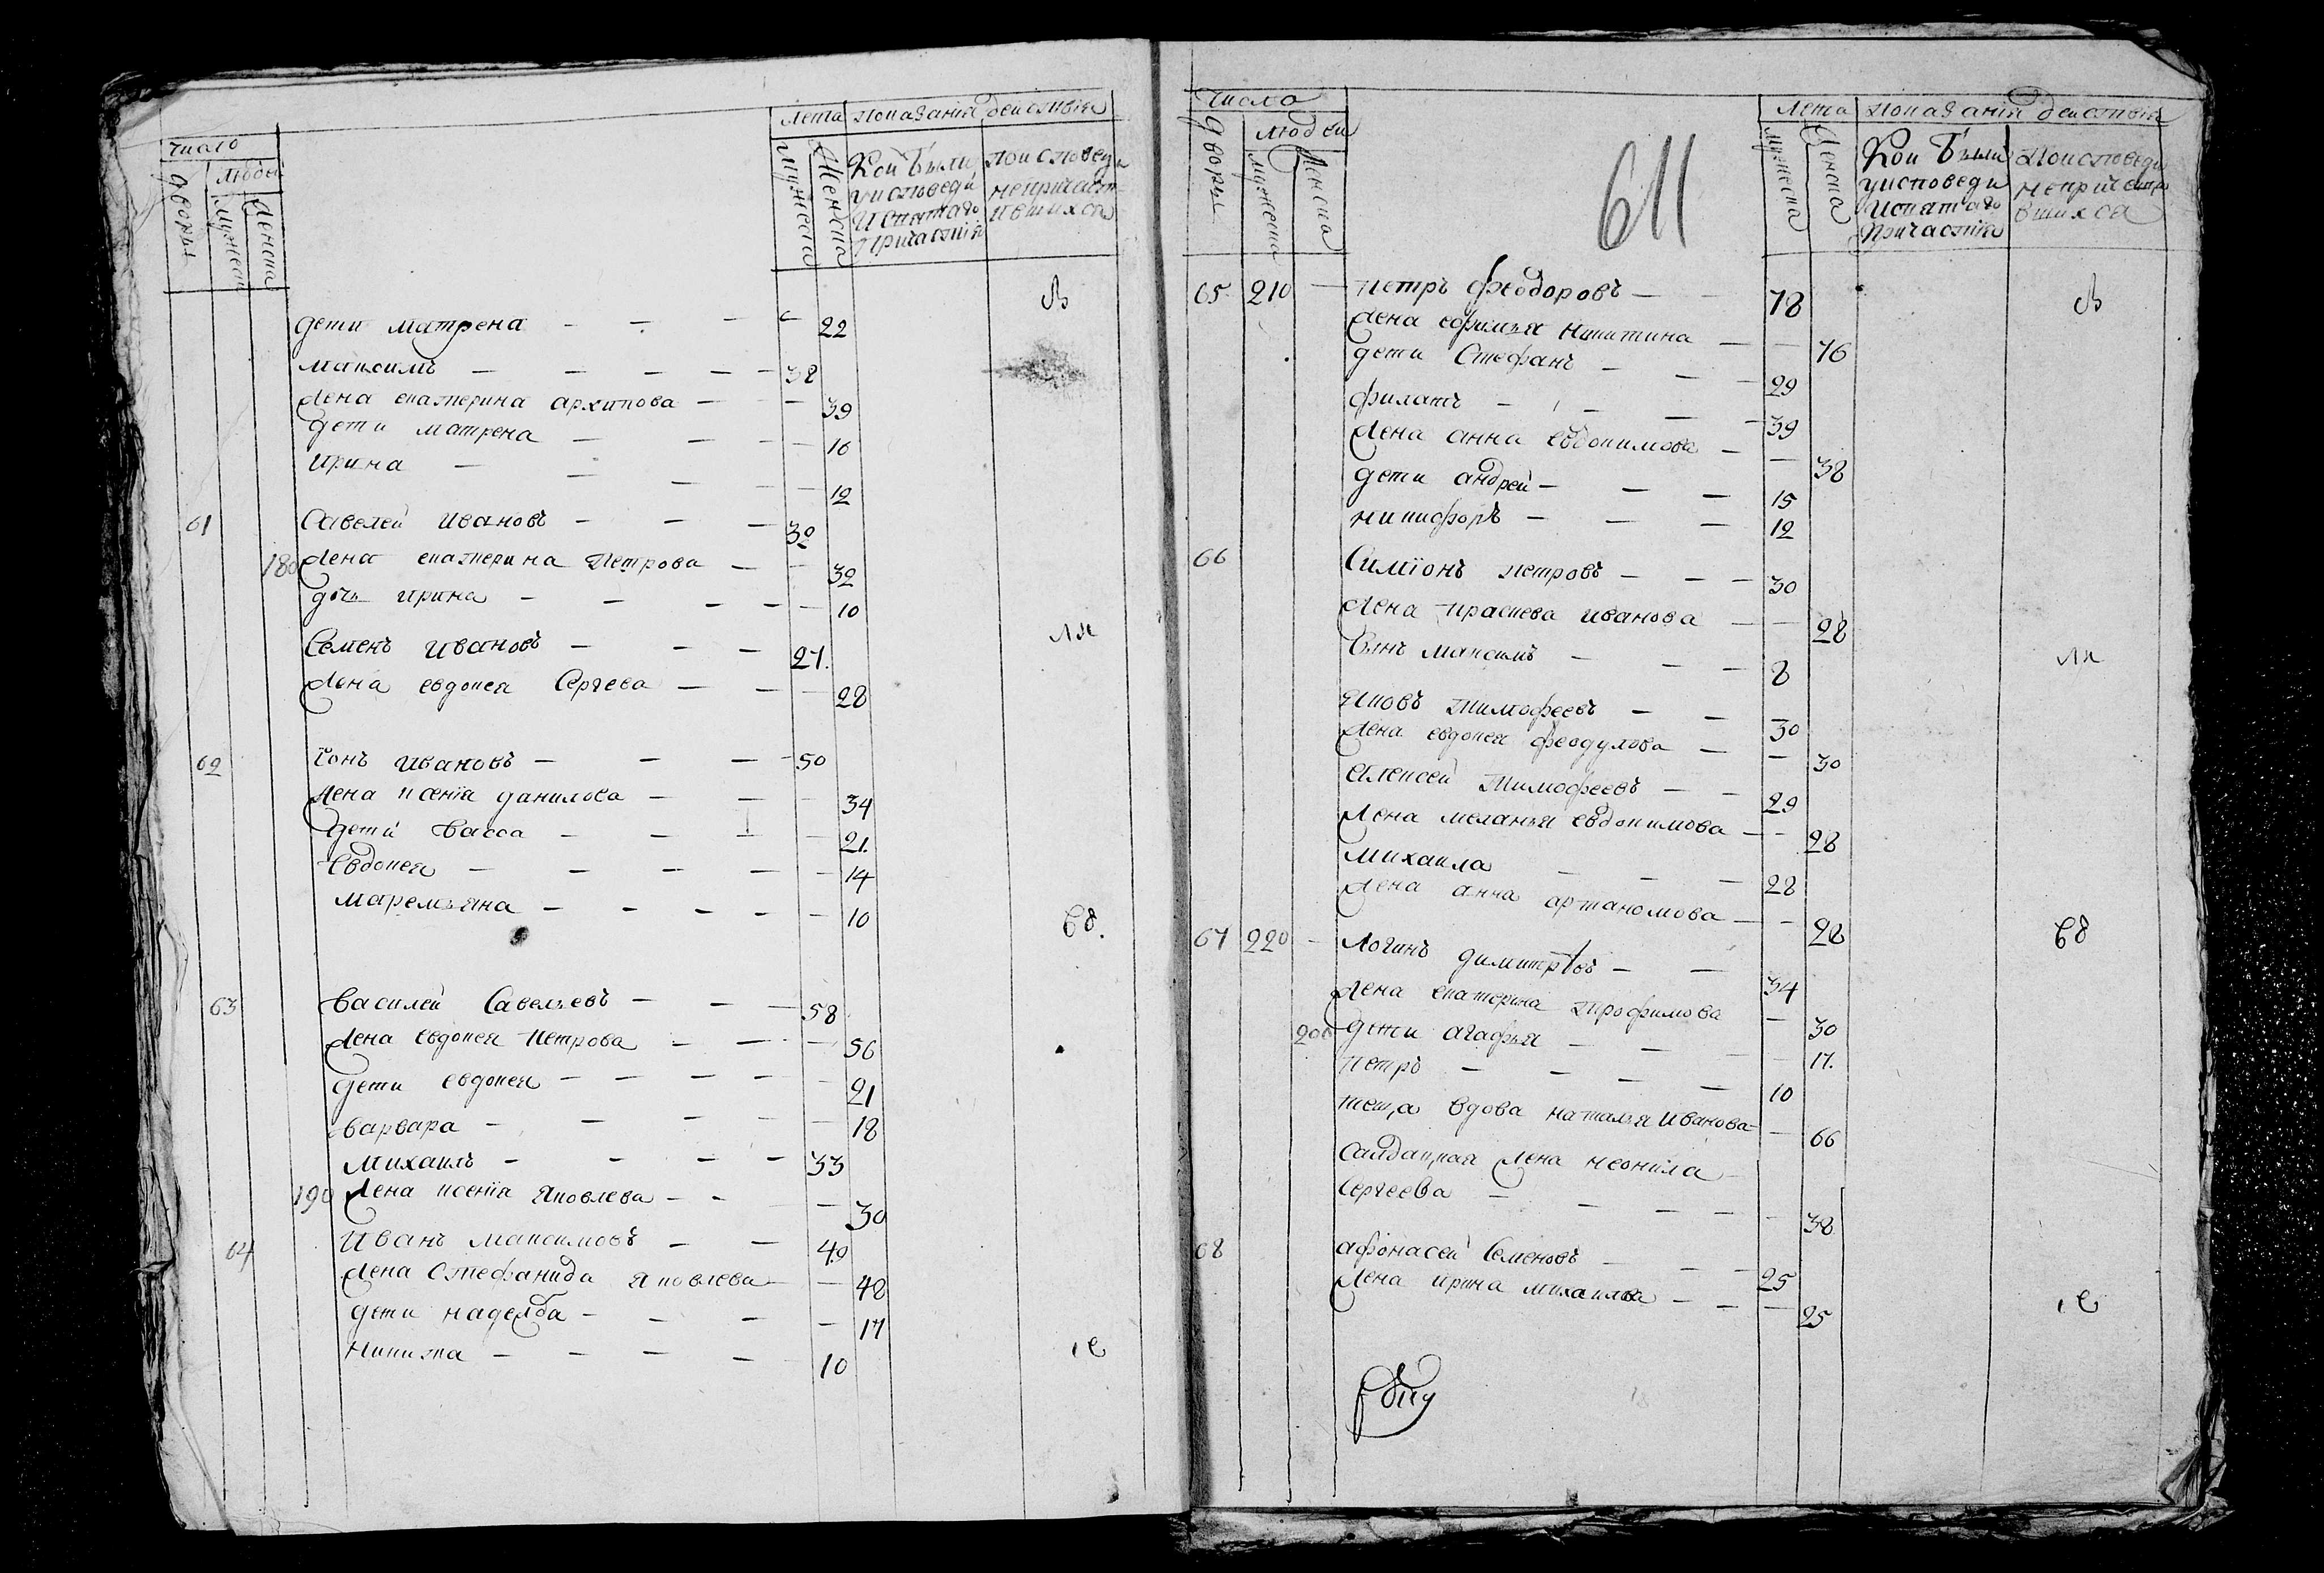 число
люде
дворы
мужеска
женска
лета
мужеска
женска
показаниѧ действиѧ
Кои были
уисповеди
исвятаго
причастиѧ
поисповеди
непричаст
ившихся
дети матрена — — — 22
максимъ — — — — 38
жена екатерина архипова — — 39
дети матрена — — — 16
ирина — — — — 12
61 Савелей ивановъ — — — 32
180 жена екатерина петрова — — 32
дочь ирина — — — — 10
Семенъ ивановъ — — — 27.
жена евдокея Сергева — — 28
62 Іонъ ивановъ — — — 50
жена ксенїя данилова — — — 34
дети васса — — — 21.
Евдокея — — — — 14
маремьяна — — — — 10
63 василей Савельевъ — — — 58
жена евдокея петрова — — — 56
дети евдокея — — — — 21
варвара — — — — 18
михаилъ — — — — 33
190 жена ксенїя яковлева — — 30
64 иванъ максимовъ — — 49
жена Стефанида яковлева — 48
дети надежда — — — 17
никита — — — — 10
число
людей
дворы
мужеска
женска
611
лета
мужеска
женска
показанїѧ действїѧ
Кои были
уисповеди
исвятаго
причастїя
поисповеди
непричасти
вшихся
65 210 — петръ феодоровъ — — 78
жена ефимья никитина — — 76
дети Стефанъ — — — 29
филатъ — — — — 39
жена анна евдокимова — — 38
дети андрей — — — 15
никифоръ — — — 12
66 Симїонъ петровъ — — — 30
жена праскева иванова — — 28
Сынъ максимъ — — — 8
яковъ тимофеевъ — — — 30
жена евдокея феодулова — — 30
алексей тимофеевъ — — 29
жена меланья евдокимова — — 28
михаила — — — 28
жена анна артамонова — — 28
67 220 — логинъ димитрїевъ — — 34
жена екатерина трофимова — 30
200 дети агафья — — — — 17.
петръ — — — — 10
теща вдова наталья иванова — 66
Салдацкая жена неонила —
Сергеева — — — — 38
68 афонасей Семеновъ — — — 25
жена ирина михаилова — — — 25